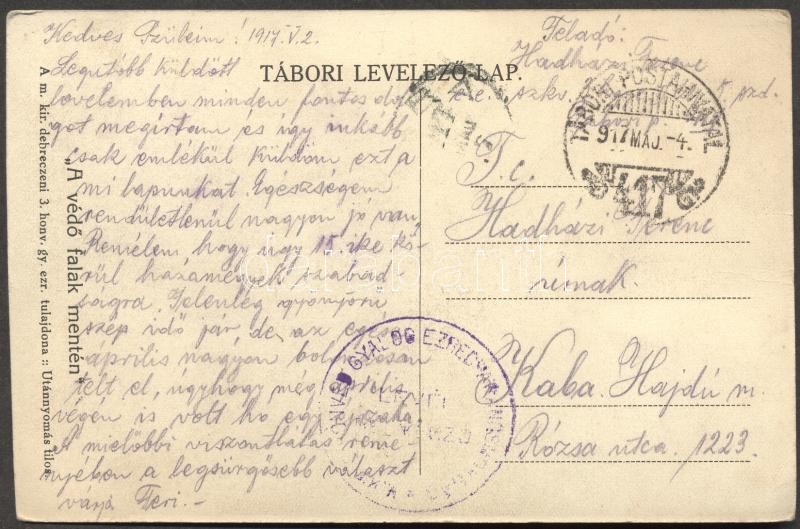 Kedves Szüleim! 1917.V.2.
Legutóbb küldött
levelemben minden fontos dol-
got megírtam és így inkább
csak emlékül küldöm ezt a
mi lapunkat. Egészségem
rendületlenül nagyon jó van.
Remélem hogy úgy 15.-ike kö-
rül hazamegyek szabad-
ságra. Jelenleg gyönyörű
szép idő jár, de az egész
április nagyon bolondosan
telt el, úgyhogy még április
végén is volt hó egy
A mielőbbi viszontlátás remé-
nyében a legsürgősebb választ
várja Feri.-
TÁBORI LEVELEZŐ-LAP.
Feladó:
Hadházi Ferenc
szkv.
TÁBORI POSTAHIVATAL
917 MÁJ. -4.
417
T. c.
Hadházi Ferenc
úrnak.
Kaba. Hajdú m.
Rózsa utca. 1223.
GYALOG EZRED
„A védő falak mentén"
A m. kir. debreczeni 3. honv. gy. ezr. tulajdona :: Utánnyomás tilos
darabanth